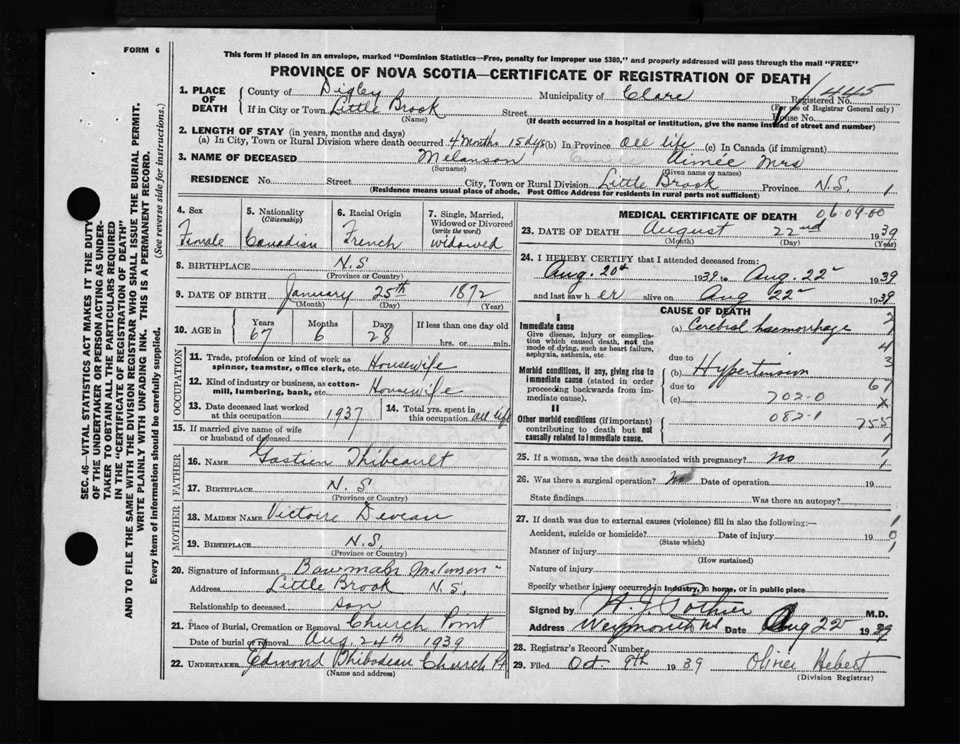 FORM 6
This form if placed in an envelope, marked "Dominion Statistics—Free, penalty for improper use $300," and properly addressed will pass through the mail "FREE"
PROVINCE OF NOVA SCOTIA—CERTIFICATE OF REGISTRATION OF DEATH
1. PLACE OF DEATH { County of Digby Municipality of Clare Registered No. 1445
(For use of Registrar General only)
If in City or Town Little Brook Street House No.
(Name) (If death occurred in a hospital or institution, give the name instead of street and number)
2. LENGTH OF STAY (in years, months and days)
(a) In City, Town or Rural Division where death occurred 4 months 15 dys (b) In Province all life (c) In Canada (if immigrant)
3. NAME OF DECEASED Melanson Aimée Mrs
(Surname) (Given name or names)
RESIDENCE No. Street City, Town or Rural Division Little Brook Province N.S. 1
(Residence means usual place of abode. Post Office Address for residents in rural parts not sufficient)
4. Sex Female
5. Nationality (Citizenship) Canadian
6. Racial Origin French
7. Single, Married, Widowed or Divorced (write the word) widowed
8. BIRTHPLACE N.S
(Province or Country)
9. DATE OF BIRTH January 25th 1872
(Month) (Day) (Year)
10. AGE in Years 67 Months 6 Days 28 If less than one day old
hrs. or min.
OCCUPATION
11. Trade, profession or kind of work as spinner, teamster, office clerk, etc. Housewife
12. Kind of industry or business, as cotton-mill, lumbering, bank, etc. Housewife
13. Date deceased last worked at this occupation 1937
14. Total yrs. spent in this occupation all life
15. If married give name of wife or husband of deceased
FATHER
16. NAME Gastien Thibeault
17. BIRTHPLACE N.S
(Province or Country)
MOTHER
18. MAIDEN NAME Victoire Deveau
19. BIRTHPLACE N.S.
(Province or Country)
20. Signature of informant Melanson
Address Little Brook N.S.
Relationship to deceased son
21. Place of Burial, Cremation or Removal Church Point
Date of burial or removal Aug. 24th 1939
22. UNDERTAKER Edmond Thibodeau Church Pt
(Name and address)
MEDICAL CERTIFICATE OF DEATH 06-09-00
23. DATE OF DEATH August 22nd 1939
(Month) (Day) (Year)
24. I HEREBY CERTIFY that I attended deceased from:
Aug. 20th 1939 to Aug. 22 1939
and last saw her alive on Aug 22 1939
CAUSE OF DEATH
I
Immediate cause
Give disease, injury or complication which caused death, not the mode of dying, such as heart failure, asphyxia, asthenia, etc.
(a) Cerebral haemorrhage
due to
Morbid conditions, if any, giving rise to immediate cause (stated in order proceeding backwards from immediate cause)
(b) Hypertension
due to
(c) 702-0
II
Other morbid conditions (if important) contributing to death but not causally related to immediate cause.
082-1
25. If a woman, was the death associated with pregnancy? no
26. Was there a surgical operation? No Date of operation 19
State findings Was there an autopsy?
27. If death was due to external causes (violence) fill in also the following:—
Accident, suicide or homicide? Date of injury 19
(State which)
Manner of injury
(How sustained)
Nature of injury
Specify whether injury occurred in industry, in home, or in public place
Signed by A J Pothier M.D.
Address Weymouth NS Date Aug 22 1939
28. Registrar's Record Number
29. Filed Oct. 9th 1939 Olivier Hebert
(Division Registrar)
SEC. 46—VITAL STATISTICS ACT MAKES IT THE DUTY
OF THE UNDERTAKER OR PERSON ACTING AS UNDER-
TAKER TO OBTAIN ALL THE PARTICULARS REQUIRED
IN THE "CERTIFICATE OF REGISTRATION OF DEATH"
AND TO FILE THE SAME WITH THE DIVISION REGISTRAR WHO SHALL ISSUE THE BURIAL PERMIT.
WRITE PLAINLY WITH UNFADING INK. THIS IS A PERMANENT RECORD.
Every item of information should be carefully supplied. (See reverse side for instructions.)